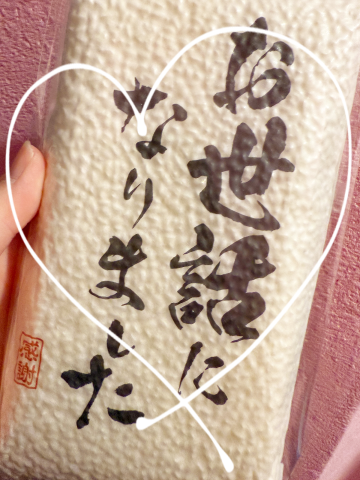 お世話に
なりました
感謝